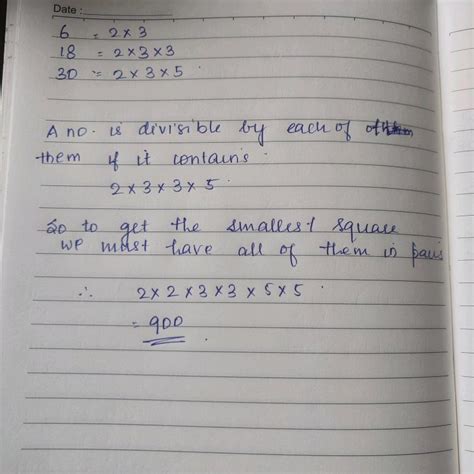 Date :
6 = 2 × 3
18 = 2 × 3 × 3
30 = 2 × 3 × 5
A no. is divisible by each of
them if it contains
2 × 3 × 3 × 5
So to get the smallest square
we must have all of them in pairs
∴ 2 × 2 × 3 × 3 × 5 × 5
= 900